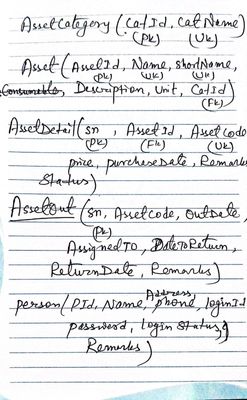 AssetCategory (CatId, CatName)
(PK) (UK)
Asset (AssetId, Name, ShortName,
(PK) (UK) (UK)
Consumable, Description, Unit, CatId)
(FK)
AssetDetail (sn, AssetId, AssetCode
(PK) (FK) (UK)
price, purchaseDate, Remarks
Status)
AssetOut (sn, AssetCode, OutDate,
(PK)
AssignedTO, DateToReturn,
ReturnDate, Remarks)
Address,
person (PId, Name, phone, loginId
password, login status,
Remarks)